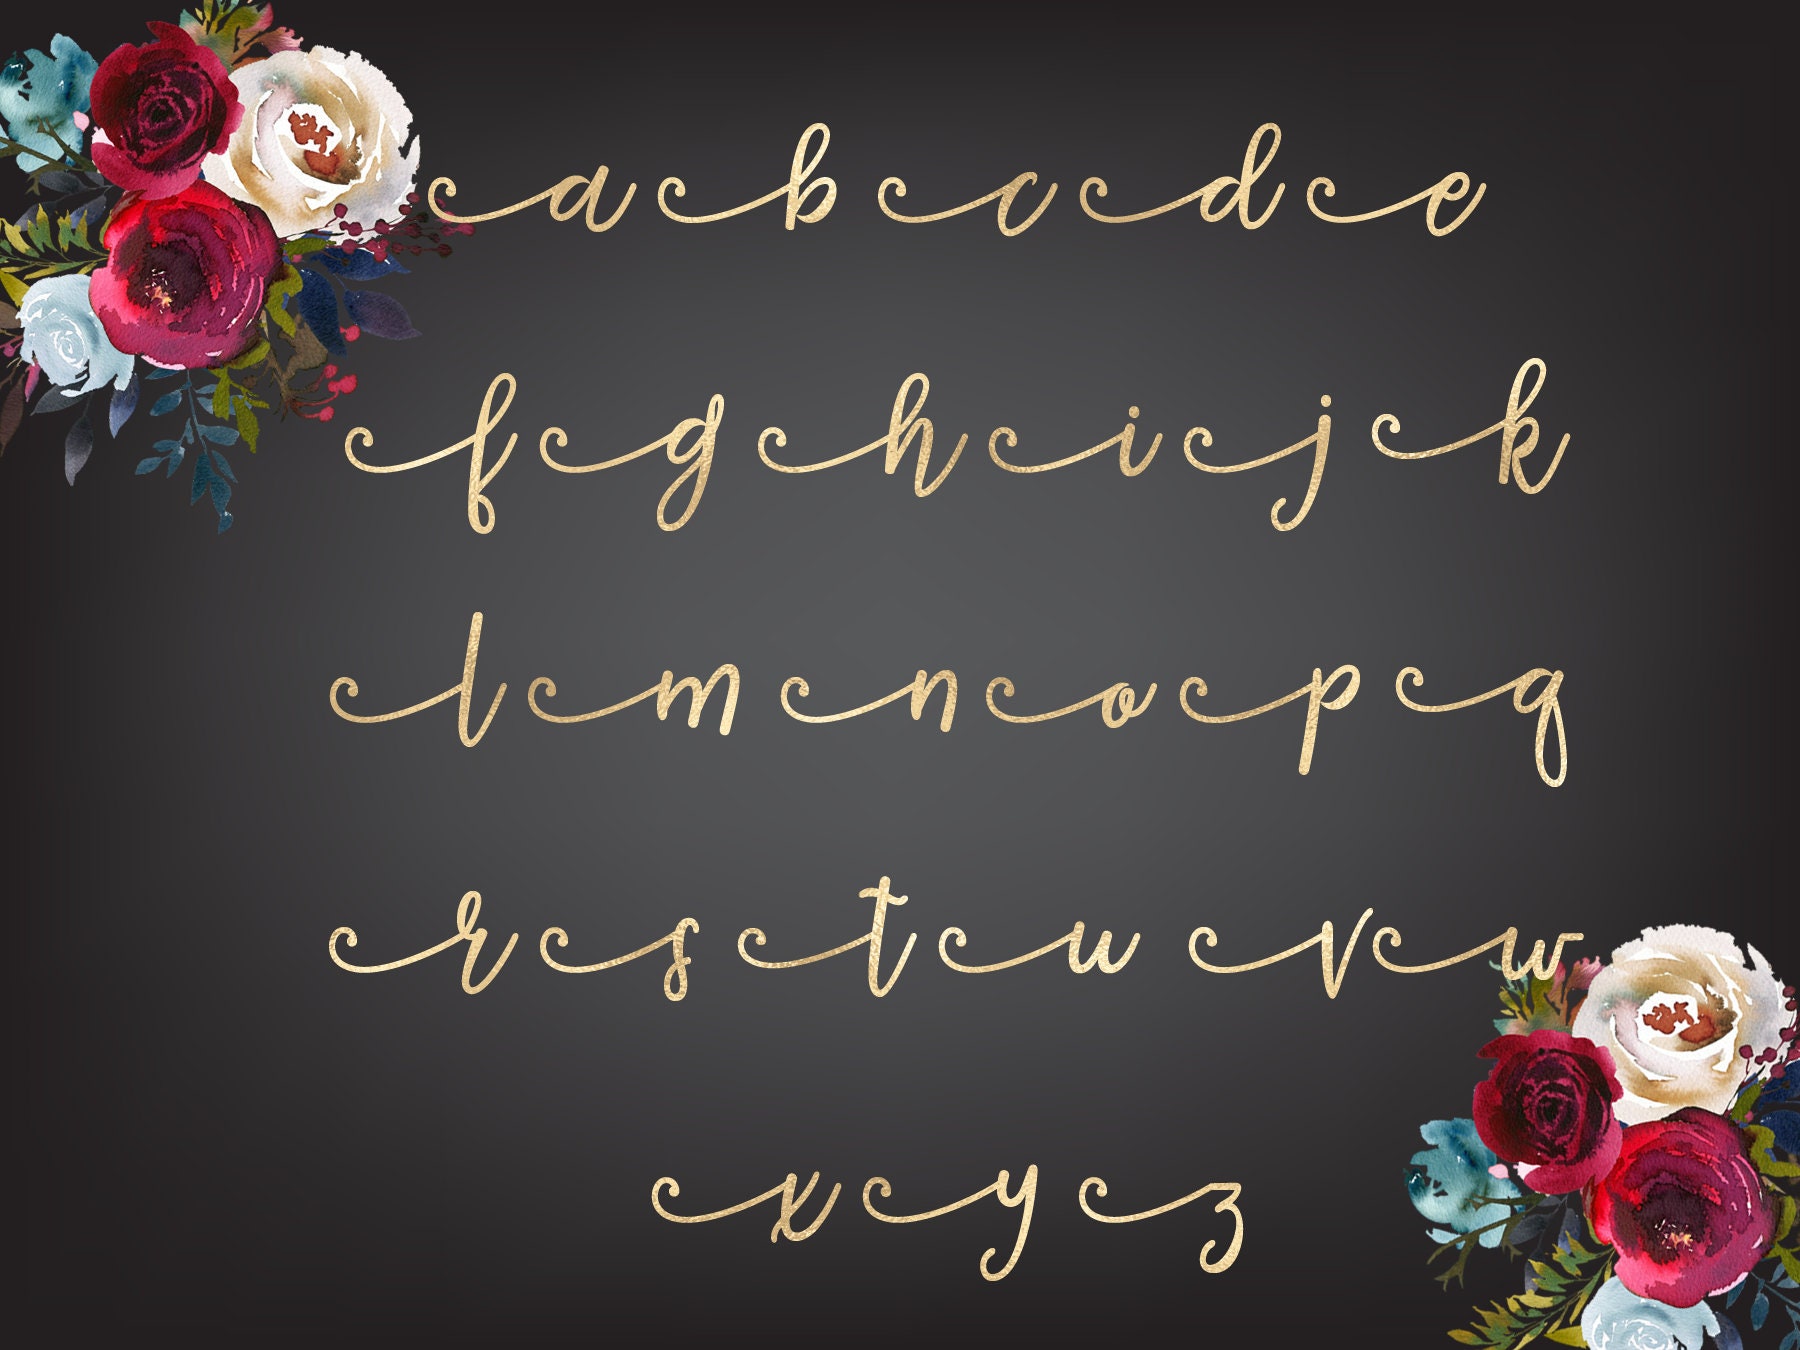 a b c d e
f g h i j k
l m n o p q
r s t u v w
x y z